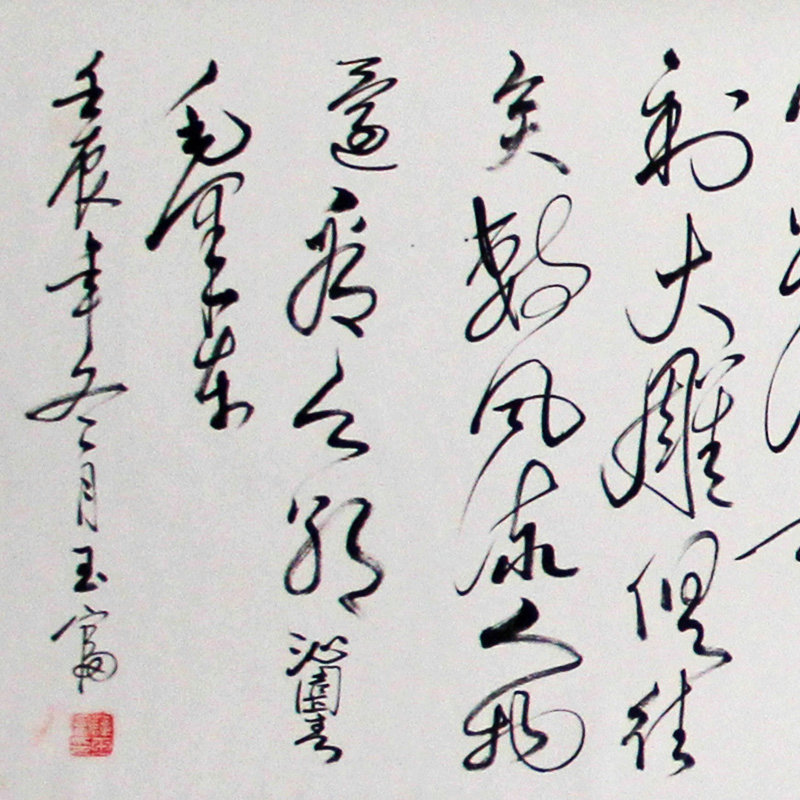 射大雕俱往
矣數风流人物
還看今朝 沁園春
毛泽东
壬辰年冬月玉富